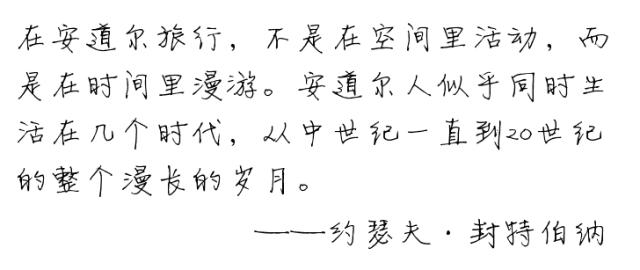 在安道尔旅行，不是在空间里活动，而
是在时间里漫游。安道尔人似乎同时生
活在几个时代，从中世纪一直到20世纪
的整个漫长的岁月。
——约瑟夫·封特伯纳